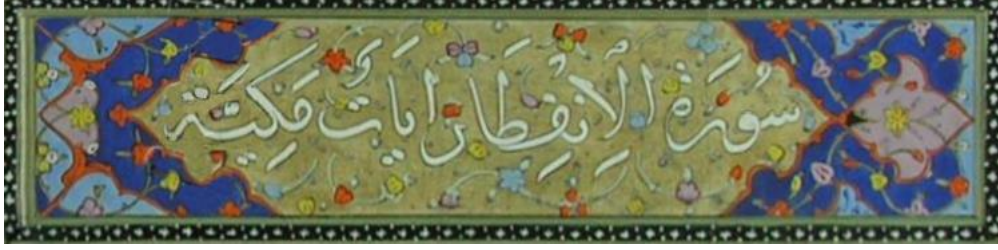 سُورَة الاِنفِطَار اٰيَات وَ مَكِيَّة